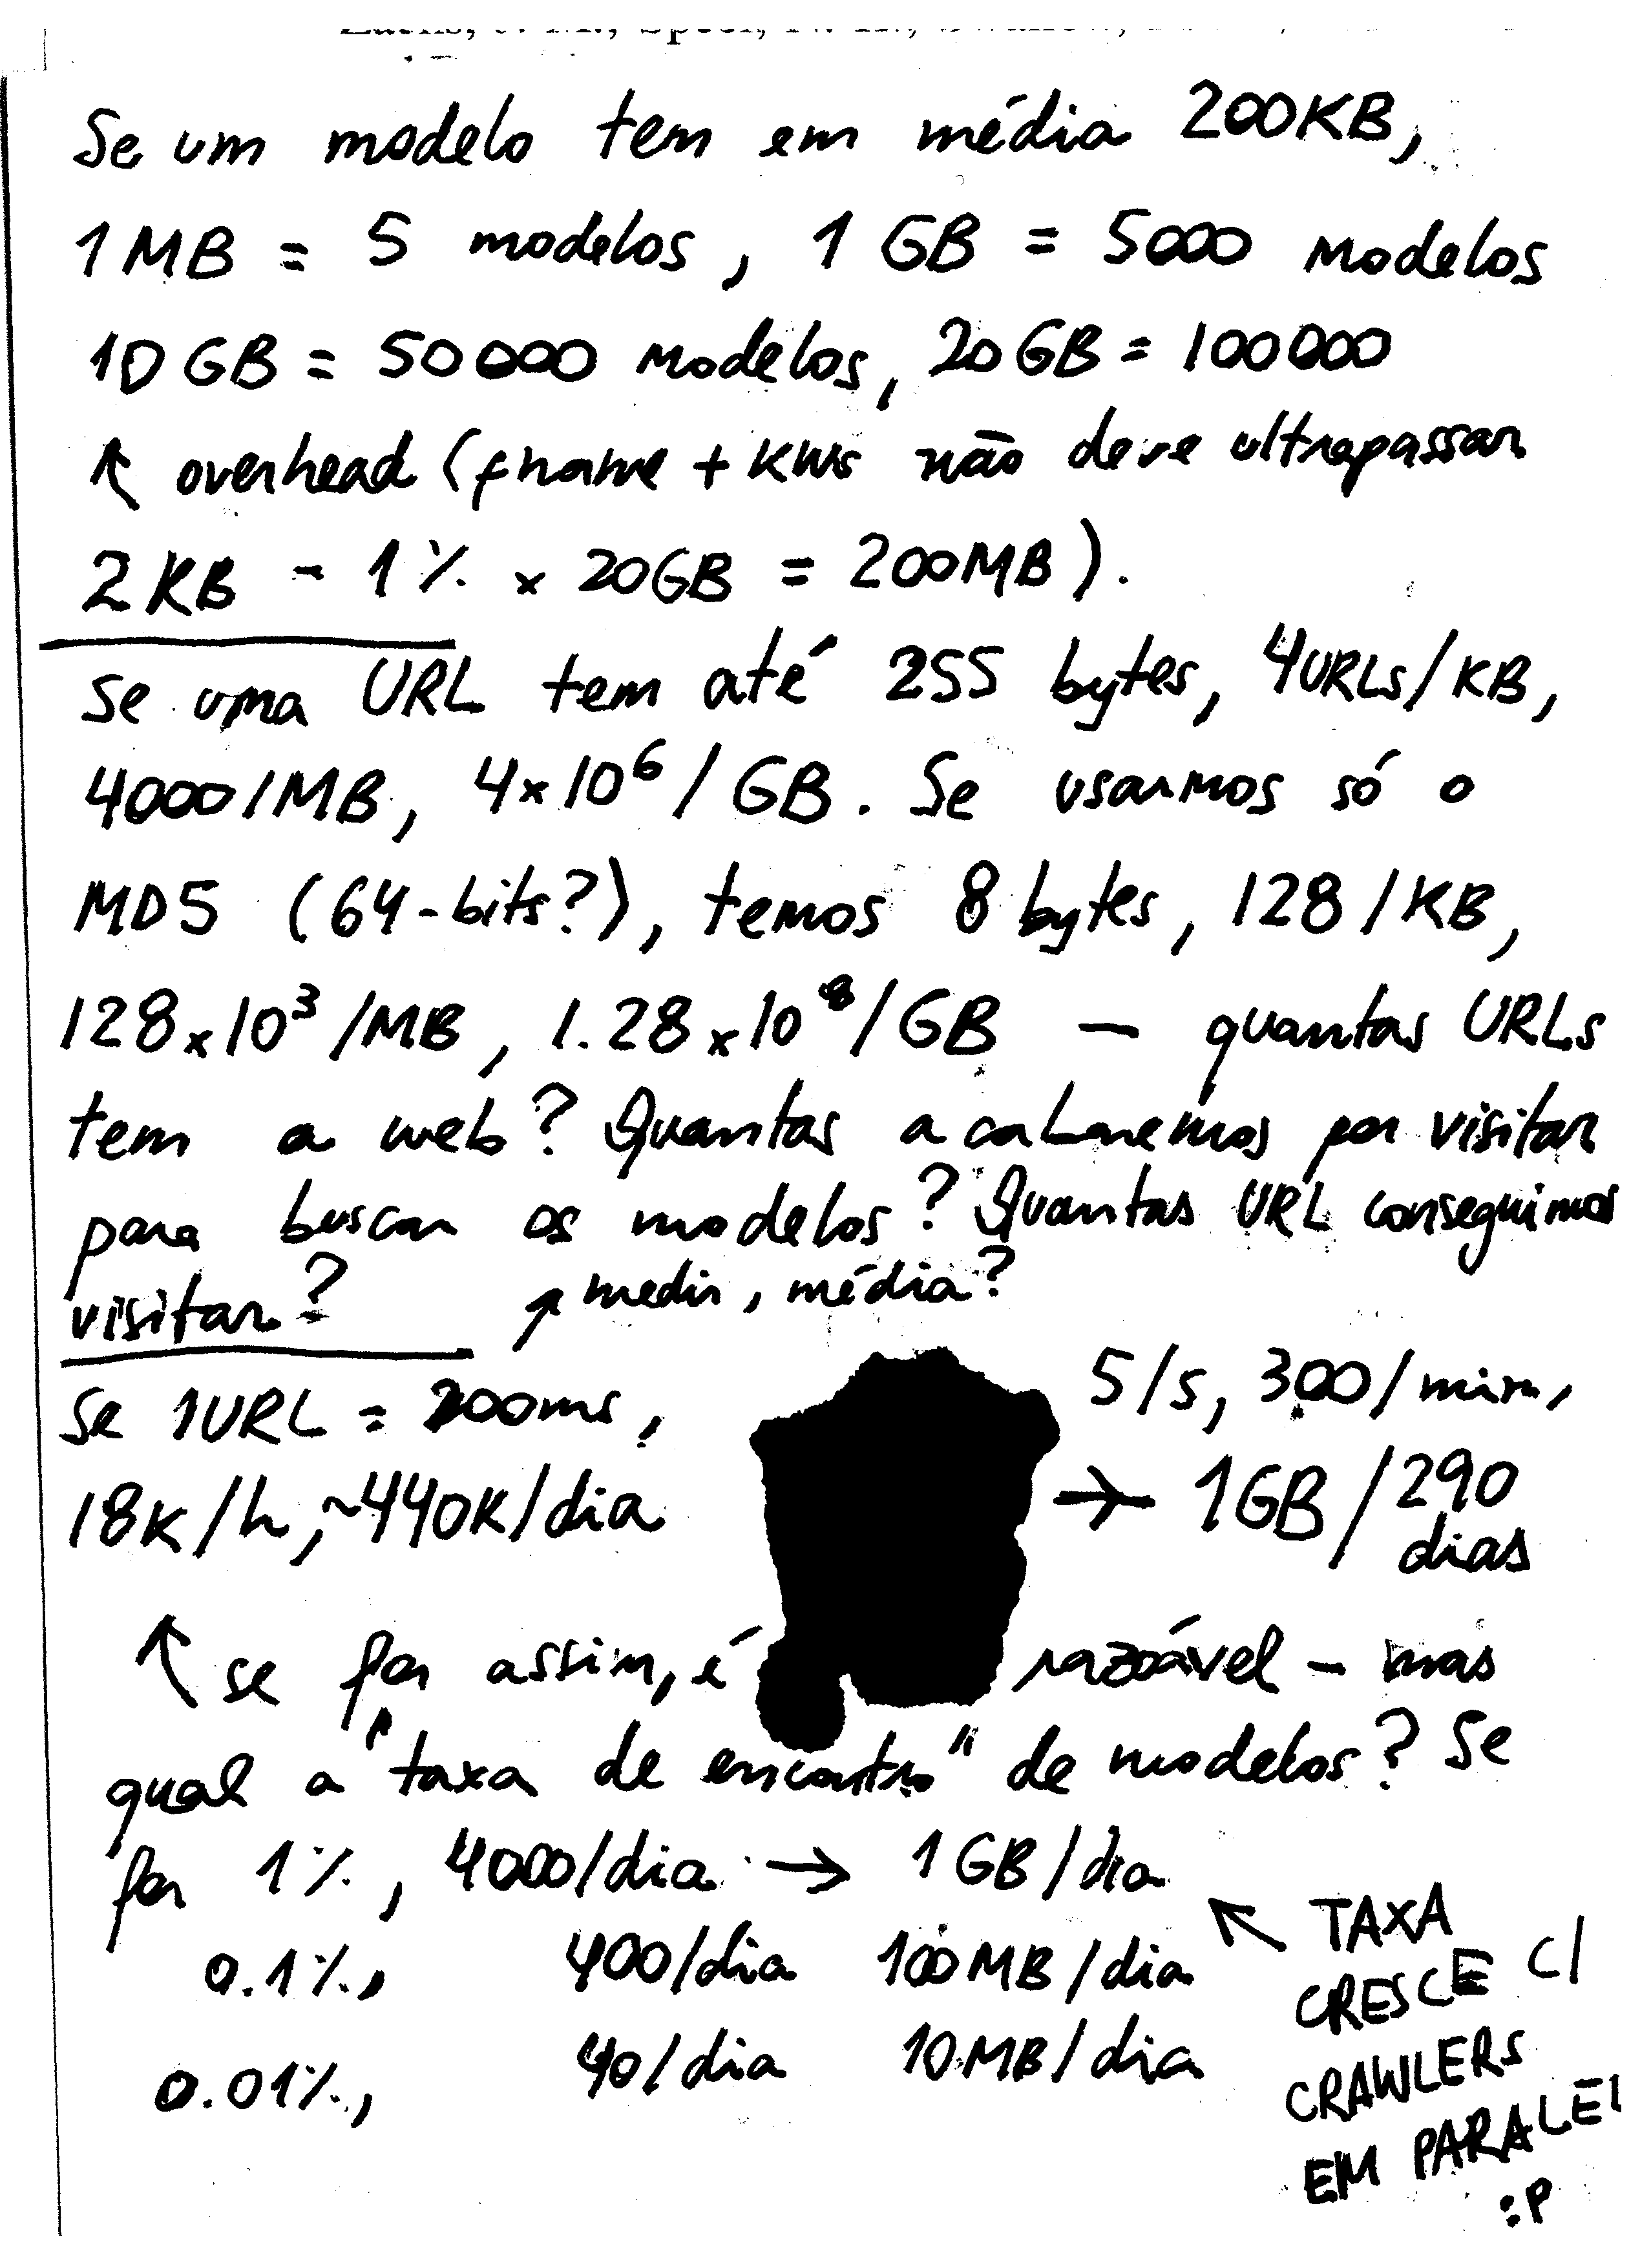 Se um modelo tem em média 200KB,
1 MB = 5 modelos, 1 GB = 5000 modelos
10 GB = 50000 modelos, 20 GB = 100000
↖ overhead (fname + KWs não deve ultrapassar
2 KB - 1% × 20GB = 200MB).
Se uma URL tem até 255 bytes, 4URLs/KB,
4000/MB, 4×10⁶/GB. Se usarmos só o
MD5 (64-bits?), temos 8 bytes, 128/KB,
128×10³/MB, 1.28×10⁸/GB — quantas URLs
tem a web? Quantas acabaremos por visitar
para buscar os modelos? Quantas URL conseguimos
visitar? ↗ medir, média?
Se 1URL = 200ms, 5/s, 300/min,
18K/h, ~440K/dia → 1GB/290 dias
↖ se for assim, é razoável - mas
qual a "taxa de encontro" de modelos? Se
for 1%, 4000/dia → 1GB/dia
0.1%, 400/dia 100MB/dia
0.01%, 40/dia 10MB/dia
↖ TAXA
CRESCE C/
CRAWLERS
EM PARALEL
:P